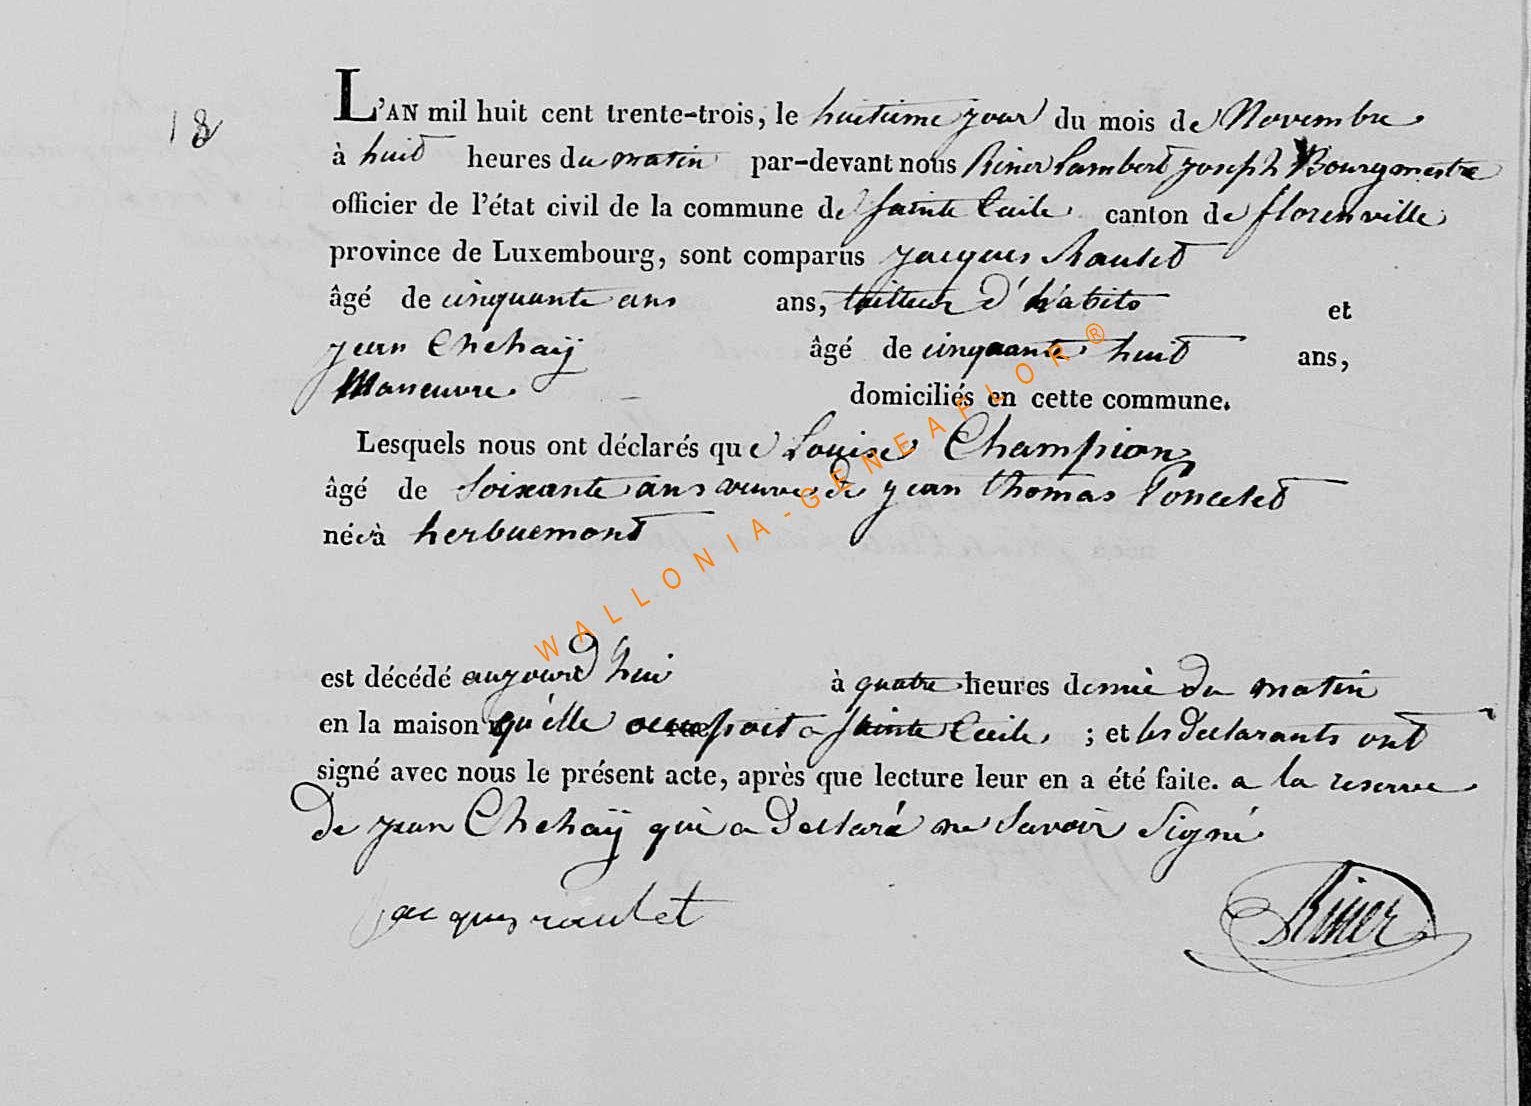 18
L'AN mil huit cent trente-trois, le huitieme jour du mois de Novembre
à huit heures du matin par-devant nous Riner Lambert joseph Bourgmestre
officier de l'état civil de la commune de sainte Cecile canton de florenville
province de Luxembourg, sont comparus jacques Raulet
âgé de cinquante ans ans, tailleur d'habits et
jean Chehaÿ âgé de cinquante huit ans,
Maneuvre domiciliés en cette commune.
Lesquels nous ont déclarés que Louise Champion
âgé de soixante ans veuve de jean thomas Poncelet
née à herbuemont
est décédé aujourd'hui à quatre heures demie du matin
en la maison qu'elle occupoit a sainte Cecile ; et les declarants ont
signé avec nous le présent acte, après que lecture leur en a été faite. a la reserve
de jean Chehaÿ qui a declaré ne savoir signé
jacques raulet Riner
WALLONIA-GENEAFLOR®